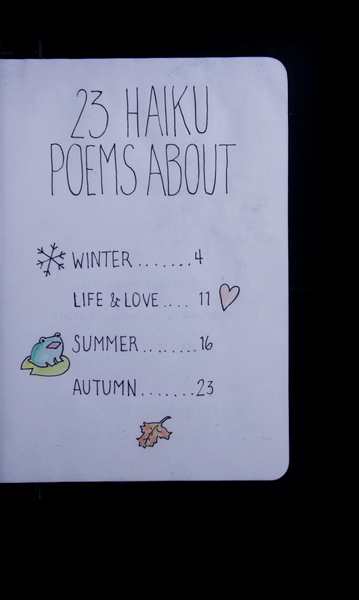 23 HAIKU
POEMS ABOUT
WINTER.......4
LIFE & LOVE.... 11
SUMMER........16
AUTUMN.......23